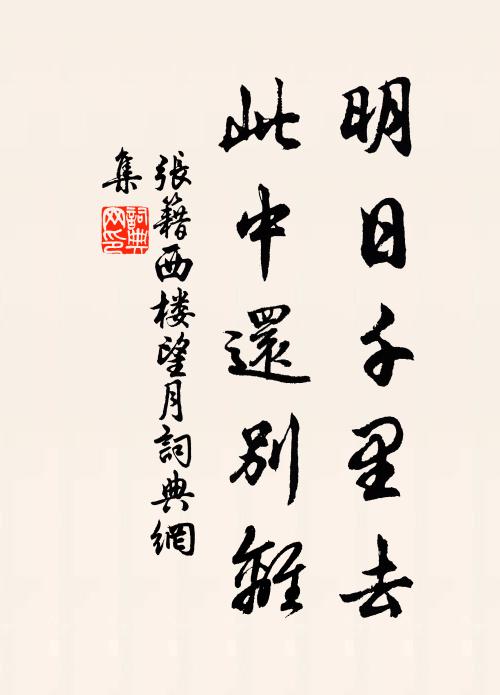 明日千里去
此中還別離
張籍西楼望月詞典網
集
詞典
网印